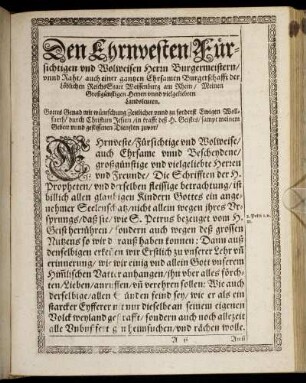 Den Ehrnvesten/ Für-
sichtigen vnd Wolweisen Herrn Burgermeistern/
vnnd Raht/ auch einer gantzen Ehrsamen Burgerschafft der
löblichen ReichsStatt Weissenburg am Rhein/ Meinen
Großgünstigen Herren vnnd vielgeliebten
Landsleuten.
Gottes Genad mit wünschung Zeitlicher vnnd zu forderst Ewigen Woll-
fahrt/ durch Christum Jesum/ in krafft deß H. Geistes/ sampt meinem
Gebett vnnd geflissenen Diensten zuvor/
Ehrnveste/ Fürsichtige vnd Wolweise/
auch Ehrsame vnnd Bescheydene/
großgünstige vnd vielgeliebte Herren
vnd Freunde/ Die Schrifften der H.
Propheten/ vnd derselben fleissige betrachtung/ ist
billich allen glaubigen Kindern Gottes ein ange-
nehmer Seelenschatz/ nicht allein wegen ihres Vr-
sprungs/ daß sie/ wie S. Petrus bezeuget vom H.
Geist herrühren/ sondern auch wegen deß grossen
Nutzens so wir darauß haben konnen: Dann auß
denselbigen erkennen wir Erstlich zu vnserer Lehr vñ
erinnerung/ wie wir einig vnd allein Gott vnserem
Himlischen Vatter anhangen/ ihn vber alles förch-
ten/ Lieben/ anruffen/ vñ verehren sollen: Wie auch
derselbige allen Sünden feind sey/ wie er als ein
starcker Eyfferer nit nur dieselbe an seinem eigenen
Volck weyland gestrafft/ sondern auch noch allezeit
alle Vnbußfertigen heimsuchen/ vnd rächen wolle.
2. Petri 1. v.
A ij
Auß